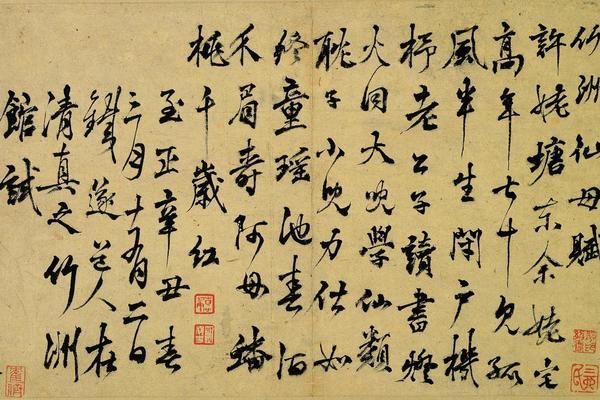 竹洲仙母賦
許姥塘東余姥宅
高年七十見孤
風半生閉戶機
杼老公子讀書燈
火同大兒學仙類
耽子小兒力仕如
終童瑤池春酒
介眉壽阿母蟠
桃千歲紅
至正辛丑春
三月十有二日
鐵篴道人在
清真之竹洲
館試